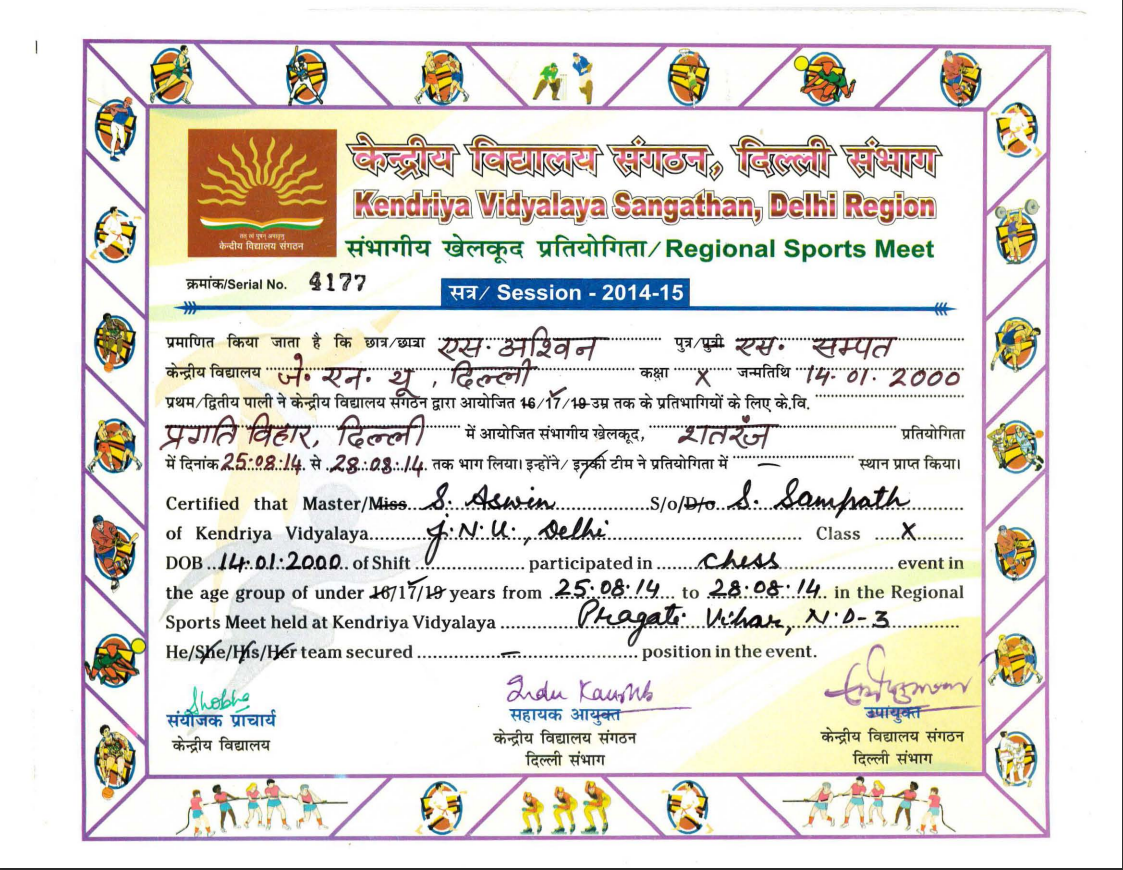 केन्द्रीय विद्यालय संगठन, दिल्ली संभाग
Kendriya Vidyalaya Sangathan, Delhi Region
संभागीय खेलकूद प्रतियोगिता/Regional Sports Meet
तत् त्वं पूषन् अपावृणु
केन्द्रीय विद्यालय संगठन
क्रमांक/Serial No. 4177
सत्र/ Session - 2014-15
प्रमाणित किया जाता है कि छात्र/छात्रा एस. अश्विन पुत्र/पुत्री एस. सम्पत
केन्द्रीय विद्यालय जे. एन. यू , दिल्ली कक्षा X जन्मतिथि 14.01.2000
प्रथम/द्वितीय पाली ने केन्द्रीय विद्यालय संगठन द्वारा आयोजित 16/17/19 उम्र तक के प्रतिभागियों के लिए के.वि.
प्रगति विहार, दिल्ली में आयोजित संभागीय खेलकूद, शतरंज प्रतियोगिता
में दिनांक 25.08.14 से 28.08.14 तक भाग लिया। इन्होंने/ इनकी टीम ने प्रतियोगिता में – स्थान प्राप्त किया।
Certified that Master/Miss S. Aswin S/o/D/o S. Sampath
of Kendriya Vidyalaya J.N.U., Delhi Class X
DOB 14.01.2000 of Shift participated in chess event in
the age group of under 16/17/19 years from 25.08.14 to 28.08.14 in the Regional
Sports Meet held at Kendriya Vidyalaya Pragati Vihar, N.D-3
He/She/His/Her team secured – position in the event.
Shobha
Indu Kaushik
संयोजक प्राचार्य
सहायक आयुक्त
उपायुक्त
केन्द्रीय विद्यालय
केन्द्रीय विद्यालय संगठन
केन्द्रीय विद्यालय संगठन
दिल्ली संभाग
दिल्ली संभाग